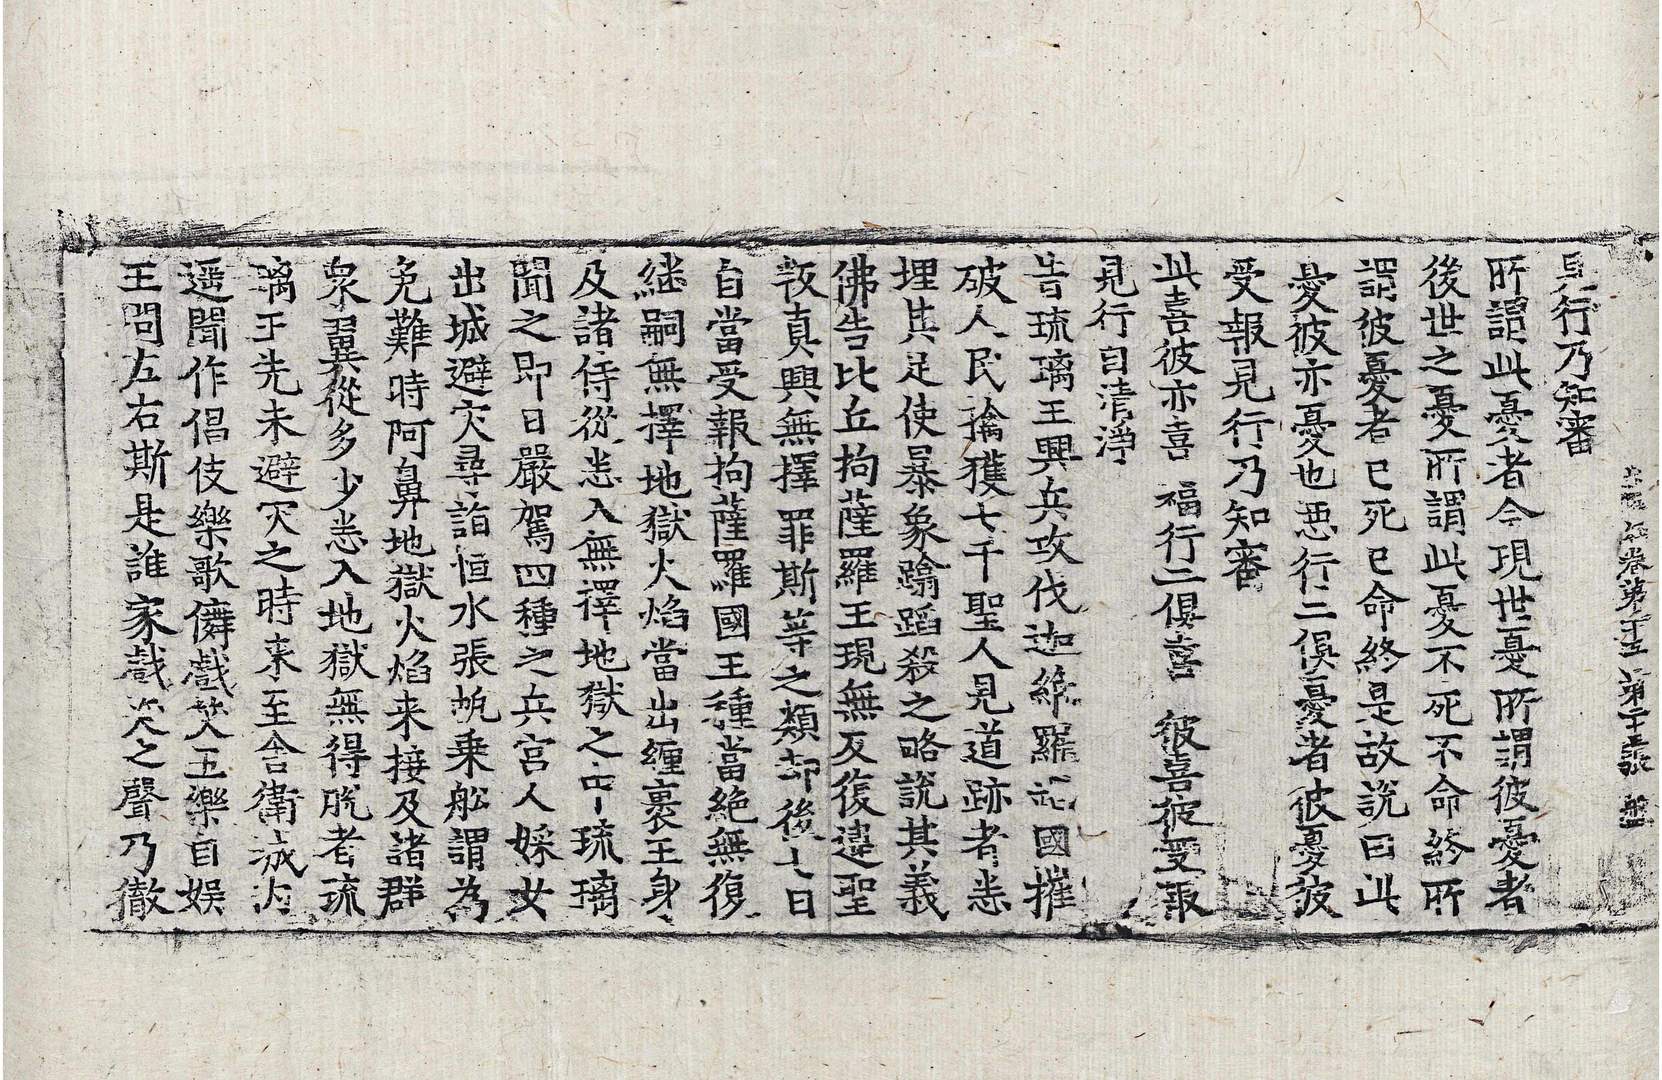 見行乃知審
所謂此憂者今現世憂所謂彼憂者
後世之憂所謂此憂不死不命終所
謂彼憂者已死已命終是故說曰此
憂彼亦憂也惡行二俱憂者彼憂彼
受報見行乃知審
此喜彼亦喜 福行二俱喜 彼喜彼受報
見行自清淨
昔琉璃王興兵攻伐迦維羅國摧
破人民擒獲七千聖人見道跡者悉
埋其足使暴象蹹蹈殺之略說其義
佛告比丘拘薩羅王現無反復違聖
叛真興無擇罪斯等之類却後七日
自當受報拘薩羅國王種當絕無復
継嗣無擇地獄火焰當出纏裹王身
及諸侍從悉入無擇地獄之中琉璃
聞之即日嚴駕四種之兵宮人婇女
出城避灾尋詣恒水張帆乗舩謂為
免難時阿鼻地獄火焰来接及諸群
衆翼從多少悉入地獄無得脫者琉
璃王先未避灾之時来至舍衛城内
遥聞作倡伎樂歌儛戲笑五樂自娯
王問左右斯是誰家戲笑之聲乃徹
卷第十五 第二十張 盤